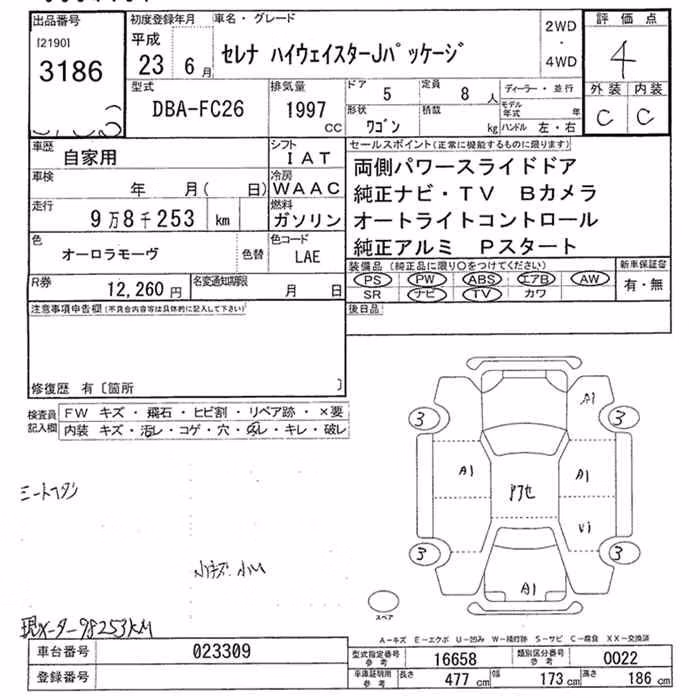 出品番号 初度登録年月 車名・グレード 2WD・4WD 評価点
[2190] 平成 セレナ ハイウェイスターJパッケージ 4
3186 23 6月
型式 排気量 ドア 5 定員 8人 ディーラー・並行 外装 内装
DBA-FC26 1997cc 形状 ワゴン 積載 kg モデル年式 年 C C
ハンドル 左・右
車歴 自家用 シフト IAT セールスポイント(正常に機能するものに限ります)
車検 年 月( 日) 冷房 WAAC 両側パワースライドドア
走行 9万8千253 km 燃料 ガソリン 純正ナビ・TV Bカメラ
オートライトコントロール
色 オーロラモーヴ 色替 色コード LAE 純正アルミ Pスタート
装備品(純正品に限り○をつけてください) 新車保証書
R券 12,260円 名変通知期限 月 日 PS PW ABS エアB AW 有・無
SR ナビ TV カワ
注意事項申告欄(不具合内容等は具体的に記入して下さい) 後日品
修復歴 有〔箇所 〕
検査員記入欄 FW キズ・飛石・ヒビ割・リペア跡・×要
内装 キズ・汚レ・コゲ・穴・スレ・キレ・破レ
A1
3 3
A1 A1
V1
3 3
A1
小キズ・小凹
スペア
現メーター98253KM
A-キズ E-エクボ U-凹み W-補修跡 S-サビ C-腐食 XX-交換済
車台番号 023309 型式指定番号 参考 16658 類別区分番号 参考 0022
登録番号 車庫証明用 参考 長さ 477cm 幅 173cm 高さ 186cm